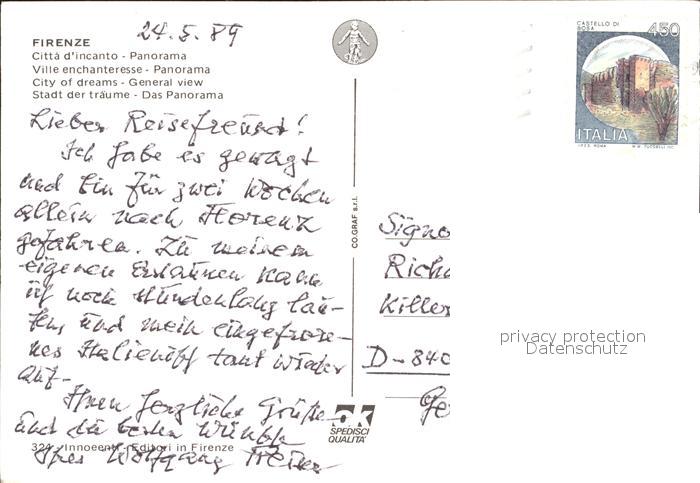 24.5.89
FIRENZE
Città d'incanto - Panorama
Ville enchanteresse - Panorama
City of dreams - General view
Stadt der träume - Das Panorama
Lieber Reisefreund!
Ich habe es gewagt
und bin für zwei Wochen
allein nach Florenz
gefahren. Zu meinem
eigenen Erstaunen kann
ich noch stundenlang lau-
fen, und mein eingefrore-
nes Italienisch taut wieder
auf.
Ihnen herzliche Grüße
und die besten Wünsche
Ihres Wolfgang
324 - Innocenti - Editori in Firenze
CO.GRAF s.r.l.
OK
SPEDISCI
QUALITA'
CASTELLO DI
BOSA
450
ITALIA
I.P.Z.S. ROMA
Signo
Richa
Killes
D-840
Ge
privacy protection
Datenschutz